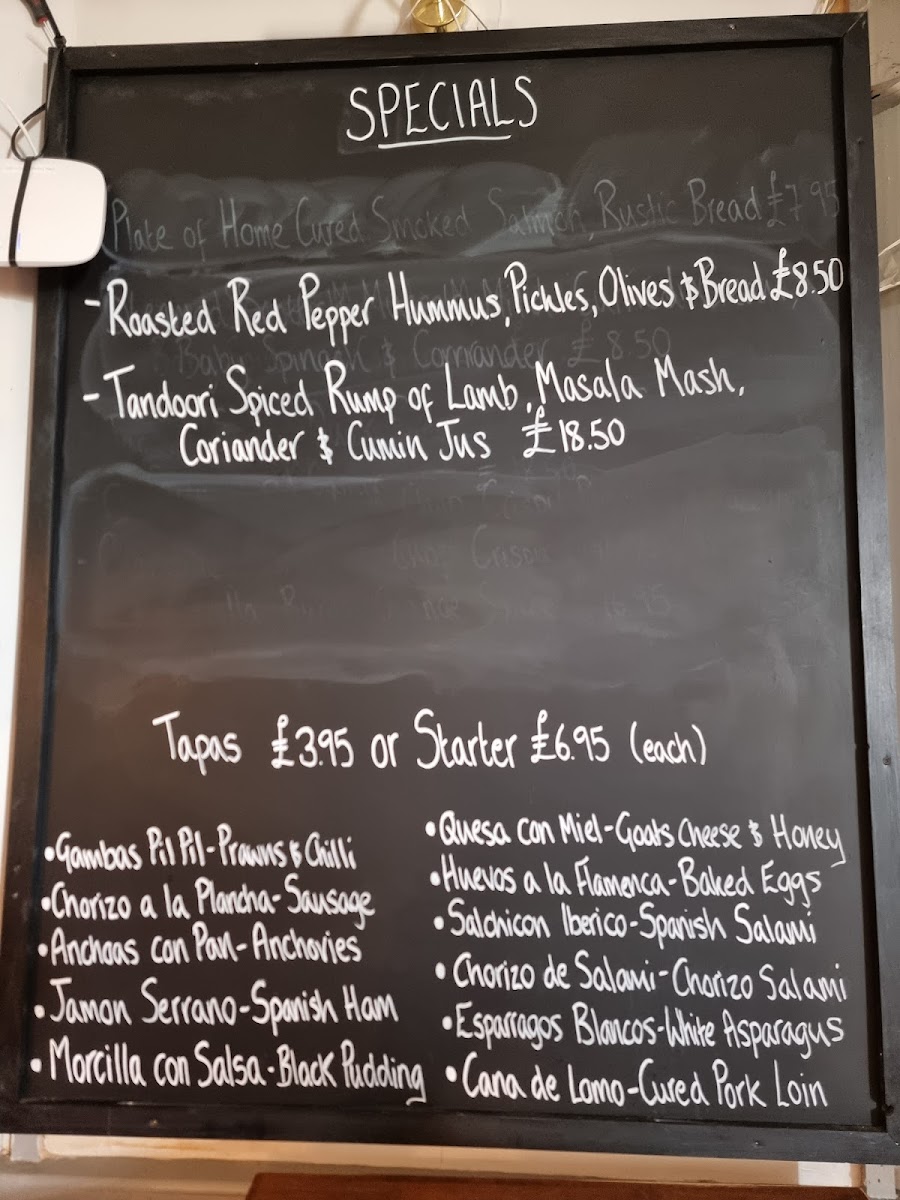 SPECIALS
Plate of Home Cured Smoked Salmon, Rustic Bread £7.95
-Roasted Red Pepper Hummus, Pickles, Olives & Bread £8.50
Baby Spinach & Corriander £8.50
-Tandoori Spiced Rump of Lamb, Masala Mash,
Coriander & Cumin Jus £18.50
Tapas £3.95 or Starter £6.95 (each)
•Gambas Pil Pil-Prawns & Chilli
•Chorizo a la Plancha-Sausage
•Anchoas con Pan-Anchovies
•Jamon Serrano-Spanish Ham
•Morcilla con Salsa-Black Pudding
•Quesa con Miel-Goats Cheese & Honey
•Huevos a la Flamenca-Baked Eggs
•Salchicon Iberico-Spanish Salami
•Chorizo de Salami-Chorizo Salami
•Esparragos Blancos-White Asparagus
•Cana de Lomo-Cured Pork Loin